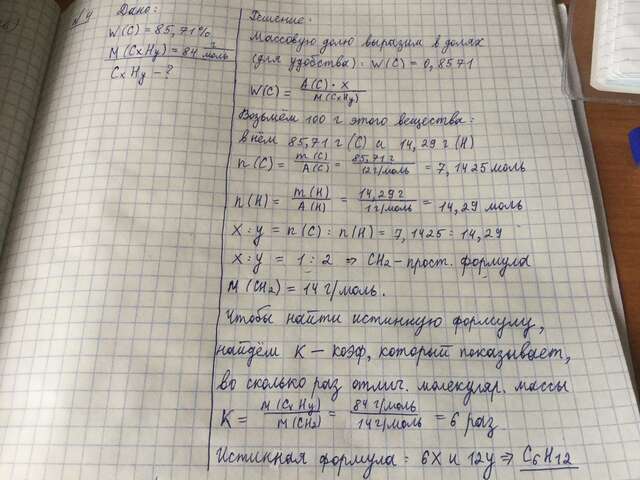 №4 Дано:
W(C) = 85,71%
M(CxHy) = 84 г/моль
CxHy - ?
Решение:
Массовую долю выразим в долях
(для удобства): W(C) = 0,8571
W(C) = A(C)·x / M(CxHy)
Возьмём 100 г этого вещества:
в нём 85,71 г (C) и 14,29 г (H)
n(C) = m(C) / A(C) = 85,71 г / 12 г/моль = 7,1425 моль
n(H) = m(H) / A(H) = 14,29 г / 1 г/моль = 14,29 моль
x : y = n(C) : n(H) = 7,1425 : 14,29
x : y = 1 : 2 ⇒ CH2 - прост. формула
M(CH2) = 14 г/моль.
Чтобы найти истинную формулу,
найдём K - коэф, который показывает,
во сколько раз отлич. молекуляр. массы
K = M(CxHy) / M(CH2) = 84 г/моль / 14 г/моль = 6 раз
Истинная формула: 6x и 12y ⇒ C6H12